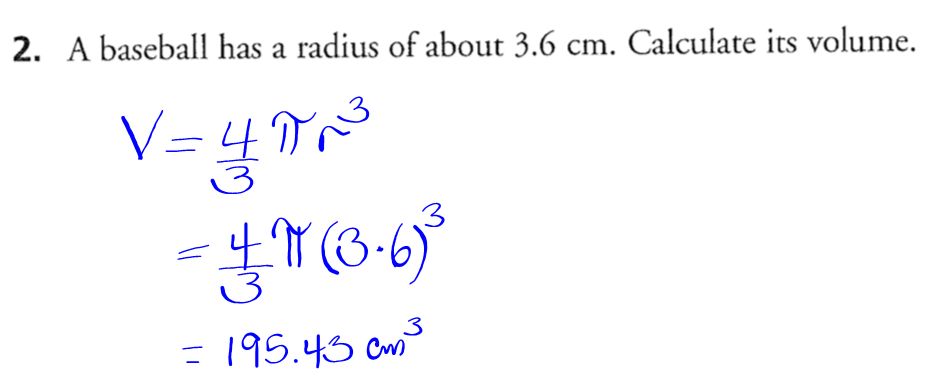 2. A baseball has a radius of about 3.6 cm. Calculate its volume.
V = 4/3 πr³
= 4/3 π(3.6)³
= 195.43 cm³